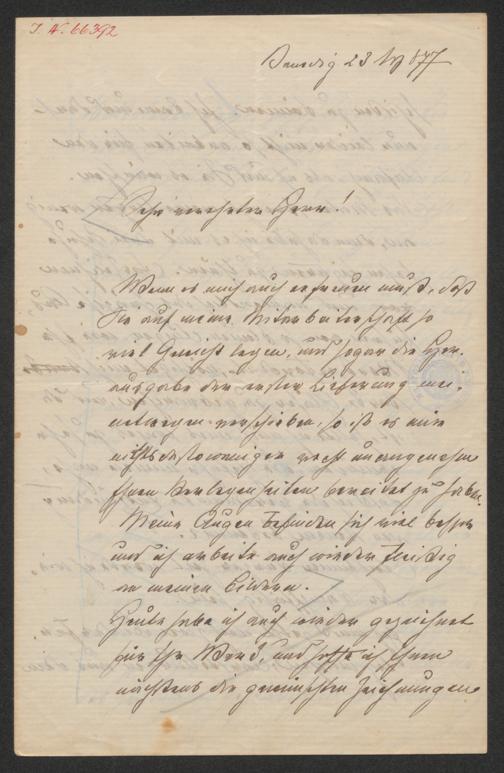 I. N. 66392
Venedig 23 1877
Sehr verehrter Herr!
Wenn es mich auch erfreuen muß, daß
Sie auf meine Mitarbeiterschaft so
viel Gewicht legen, und sogar die Her-
ausgabe der ersten Lieferung mei-
netwegen verschieben, so ist es mir
nichtsdestoweniger recht unangenehm
Ihnen Verlegenheiten bereitet zu haben.
Meine Augen befinden sich viel besser
und ich arbeite auch wieder fleißig
an meinen Bildern.
Heute habe ich auch wieder gezeichnet
für Ihr Werk, und hoffe ich Ihnen
nächstens die gewünschten Zeichnungen